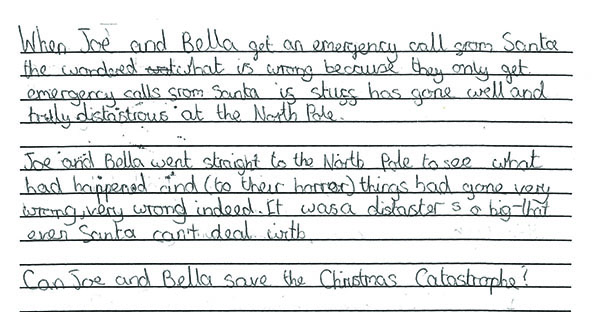 When Joe and Bella get an emergency call from Santa
the wondered what is wrong because they only get
emergency calls from Santa if stuff has gone well and
trully distastrous at the North Pole.
Joe and Bella went straight to the North Pole to see what
had happened and (to their horror) things had gone very
wrong, very wrong indeed. It was a distaster s o big-that
even Santa can't deal with
Can Joe and Bella save the Christmas Catastrophe?